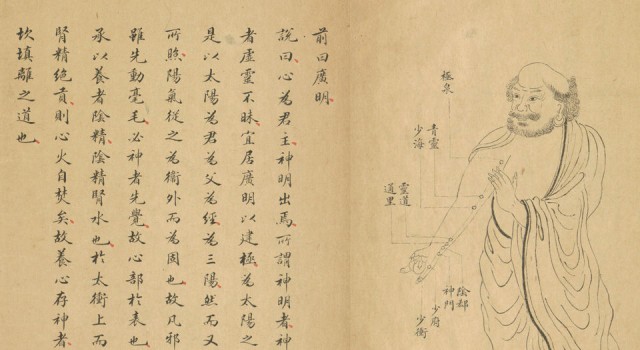 前曰廣明
說曰心為君主神明出焉所謂神明者神
者虛靈不昧宜居廣明以建極為太陽之
是以太陽為君為父為經為三陽然而又
所照陽氣從之為衛外而為固也故凡邪
雖先動毫毛必神者先覺故心部於表也
承以養者陰精陰精腎水也於太衝上而
腎精絕賁則心火自焚矣故養心存神者
坎填離之道也
極泉
青靈
少海
靈道
通里
陰郄
神門
少府
少衝